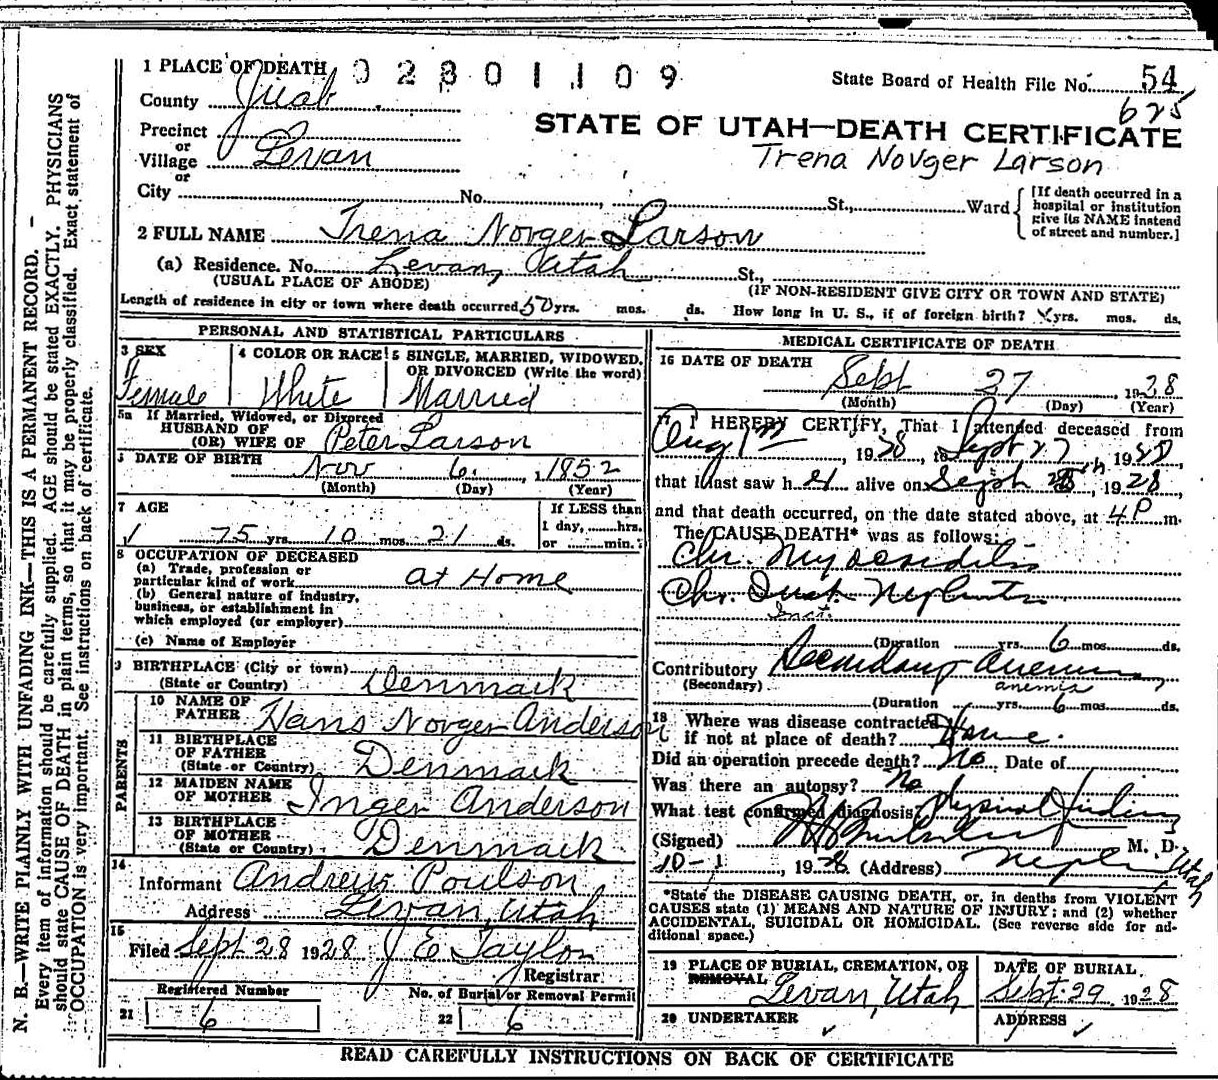 1 PLACE OF DEATH 02801109
State Board of Health File No. 54
625
County Juab
STATE OF UTAH—DEATH CERTIFICATE
Trena Novger Larson
Precinct
or
Village Levan
or
City No. St., Ward
[If death occurred in a
hospital or institution
give its NAME instead
of street and number.]
2 FULL NAME Trena Novger Larson
(a) Residence. No. Levan, Utah St.,
(USUAL PLACE OF ABODE) (IF NON-RESIDENT GIVE CITY OR TOWN AND STATE)
Length of residence in city or town where death occurred 50 yrs. mos. ds. How long in U. S., if of foreign birth? yrs. mos. ds.
PERSONAL AND STATISTICAL PARTICULARS
3 SEX
Female
4 COLOR OR RACE
White
5 SINGLE, MARRIED, WIDOWED,
OR DIVORCED (Write the word)
Married
5a If Married, Widowed, or Divorced
HUSBAND OF
(OR) WIFE OF Peter Larson
DATE OF BIRTH Nov 6, 1852
(Month) (Day) (Year)
7 AGE
75 yrs. 10 mos. 21 ds.
If LESS than
1 day, hrs.
or min.
8 OCCUPATION OF DECEASED
(a) Trade, profession or
particular kind of work at Home
(b) General nature of industry,
business, or establishment in
which employed (or employer)
(c) Name of Employer
9 BIRTHPLACE (City or town)
(State or Country) Denmark
PARENTS
10 NAME OF
FATHER Hans Novger Anderson
11 BIRTHPLACE
OF FATHER
(State or Country) Denmark
12 MAIDEN NAME
OF MOTHER Inger Anderson
13 BIRTHPLACE
OF MOTHER
(State or Country) Denmark
14
Informant Andrew Poulson
Address Levan, Utah
15
Filed Sept 28 1928 J E Taylor
Registrar
Registered Number No. of Burial or Removal Permit
21 6 22 6
MEDICAL CERTIFICATE OF DEATH
16 DATE OF DEATH
Sept 27, 1928
(Month) (Day) (Year)
17 I HEREBY CERTIFY, That I attended deceased from
Aug 1st, 1928, to Sept 27, 1928,
that I last saw her alive on Sept, 1928,
and that death occurred, on the date stated above, at 4 P m.
The CAUSE DEATH* was as follows:
Chr. Myocarditis
Chr. Inst. Nephritis
Inst.
(Duration yrs. 6 mos. ds.
Contributory Secondary anemia
(Secondary) anemia
(Duration yrs. 6 mos. ds.
18 Where was disease contracted
if not at place of death? Home.
Did an operation precede death? No Date of
Was there an autopsy? No
What test confirmed diagnosis? Physical Findings
(Signed) M. D.
10-1, 1928 (Address) Nephi, Utah
*State the DISEASE CAUSING DEATH, or, in deaths from VIOLENT
CAUSES state (1) MEANS AND NATURE OF INJURY; and (2) whether
ACCIDENTAL, SUICIDAL OR HOMICIDAL. (See reverse side for ad-
ditional space.)
19 PLACE OF BURIAL, CREMATION, OR
REMOVAL Levan, Utah
DATE OF BURIAL
Sept 29 1928
20 UNDERTAKER
ADDRESS
READ CAREFULLY INSTRUCTIONS ON BACK OF CERTIFICATE
N. B.—WRITE PLAINLY WITH UNFADING INK—THIS IS A PERMANENT RECORD.
Every item of information should be carefully supplied. AGE should be stated EXACTLY. PHYSICIANS
should state CAUSE OF DEATH in plain terms, so that it may be properly classified. Exact statement of
OCCUPATION is very important. See instructions on back of certificate.